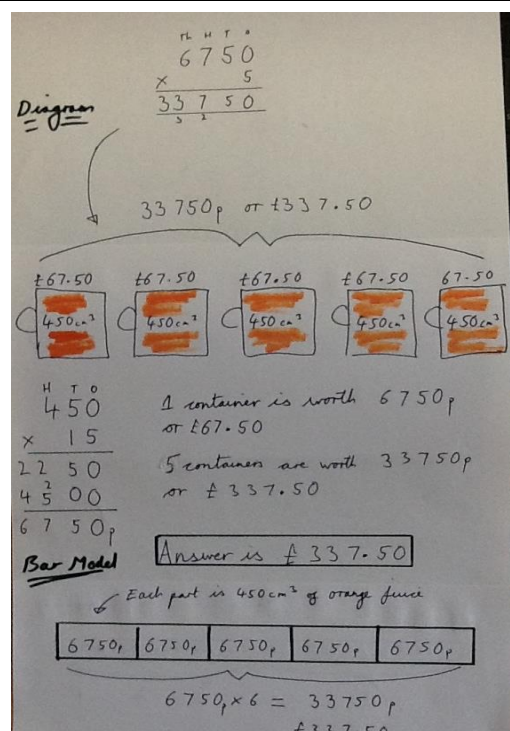 Th H T O
6 7 5 0
× 5
3 3 7 5 0
3 2
Diagram
33750p or £337.50
£67.50 £67.50 £67.50 £67.50 67.50
450cm³ 450cm³ 450cm³ 450cm³ 450cm³
H T O
4 5 0
× 1 5
2 2 5 0
2
4 5 0 0
6 7 5 0p
1 container is worth 6750p
or £67.50
5 containers are worth 33750p
or £337.50
Answer is £337.50
Bar Model
Each part is 450cm³ of orange juice
6750p 6750p 6750p 6750p 6750p
6750p × 6 = 33750p
£337.50